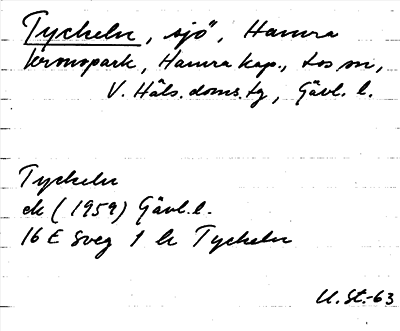 Tyckeln, sjö, Hamra
kronopark, Hamra kap., Los sn,
V. Häls. doms.tg, Gävl. l.
Tyckeln
ek (1959) Gävl. l.
16 E Sveg 1 h Tyckeln
U.St.-63